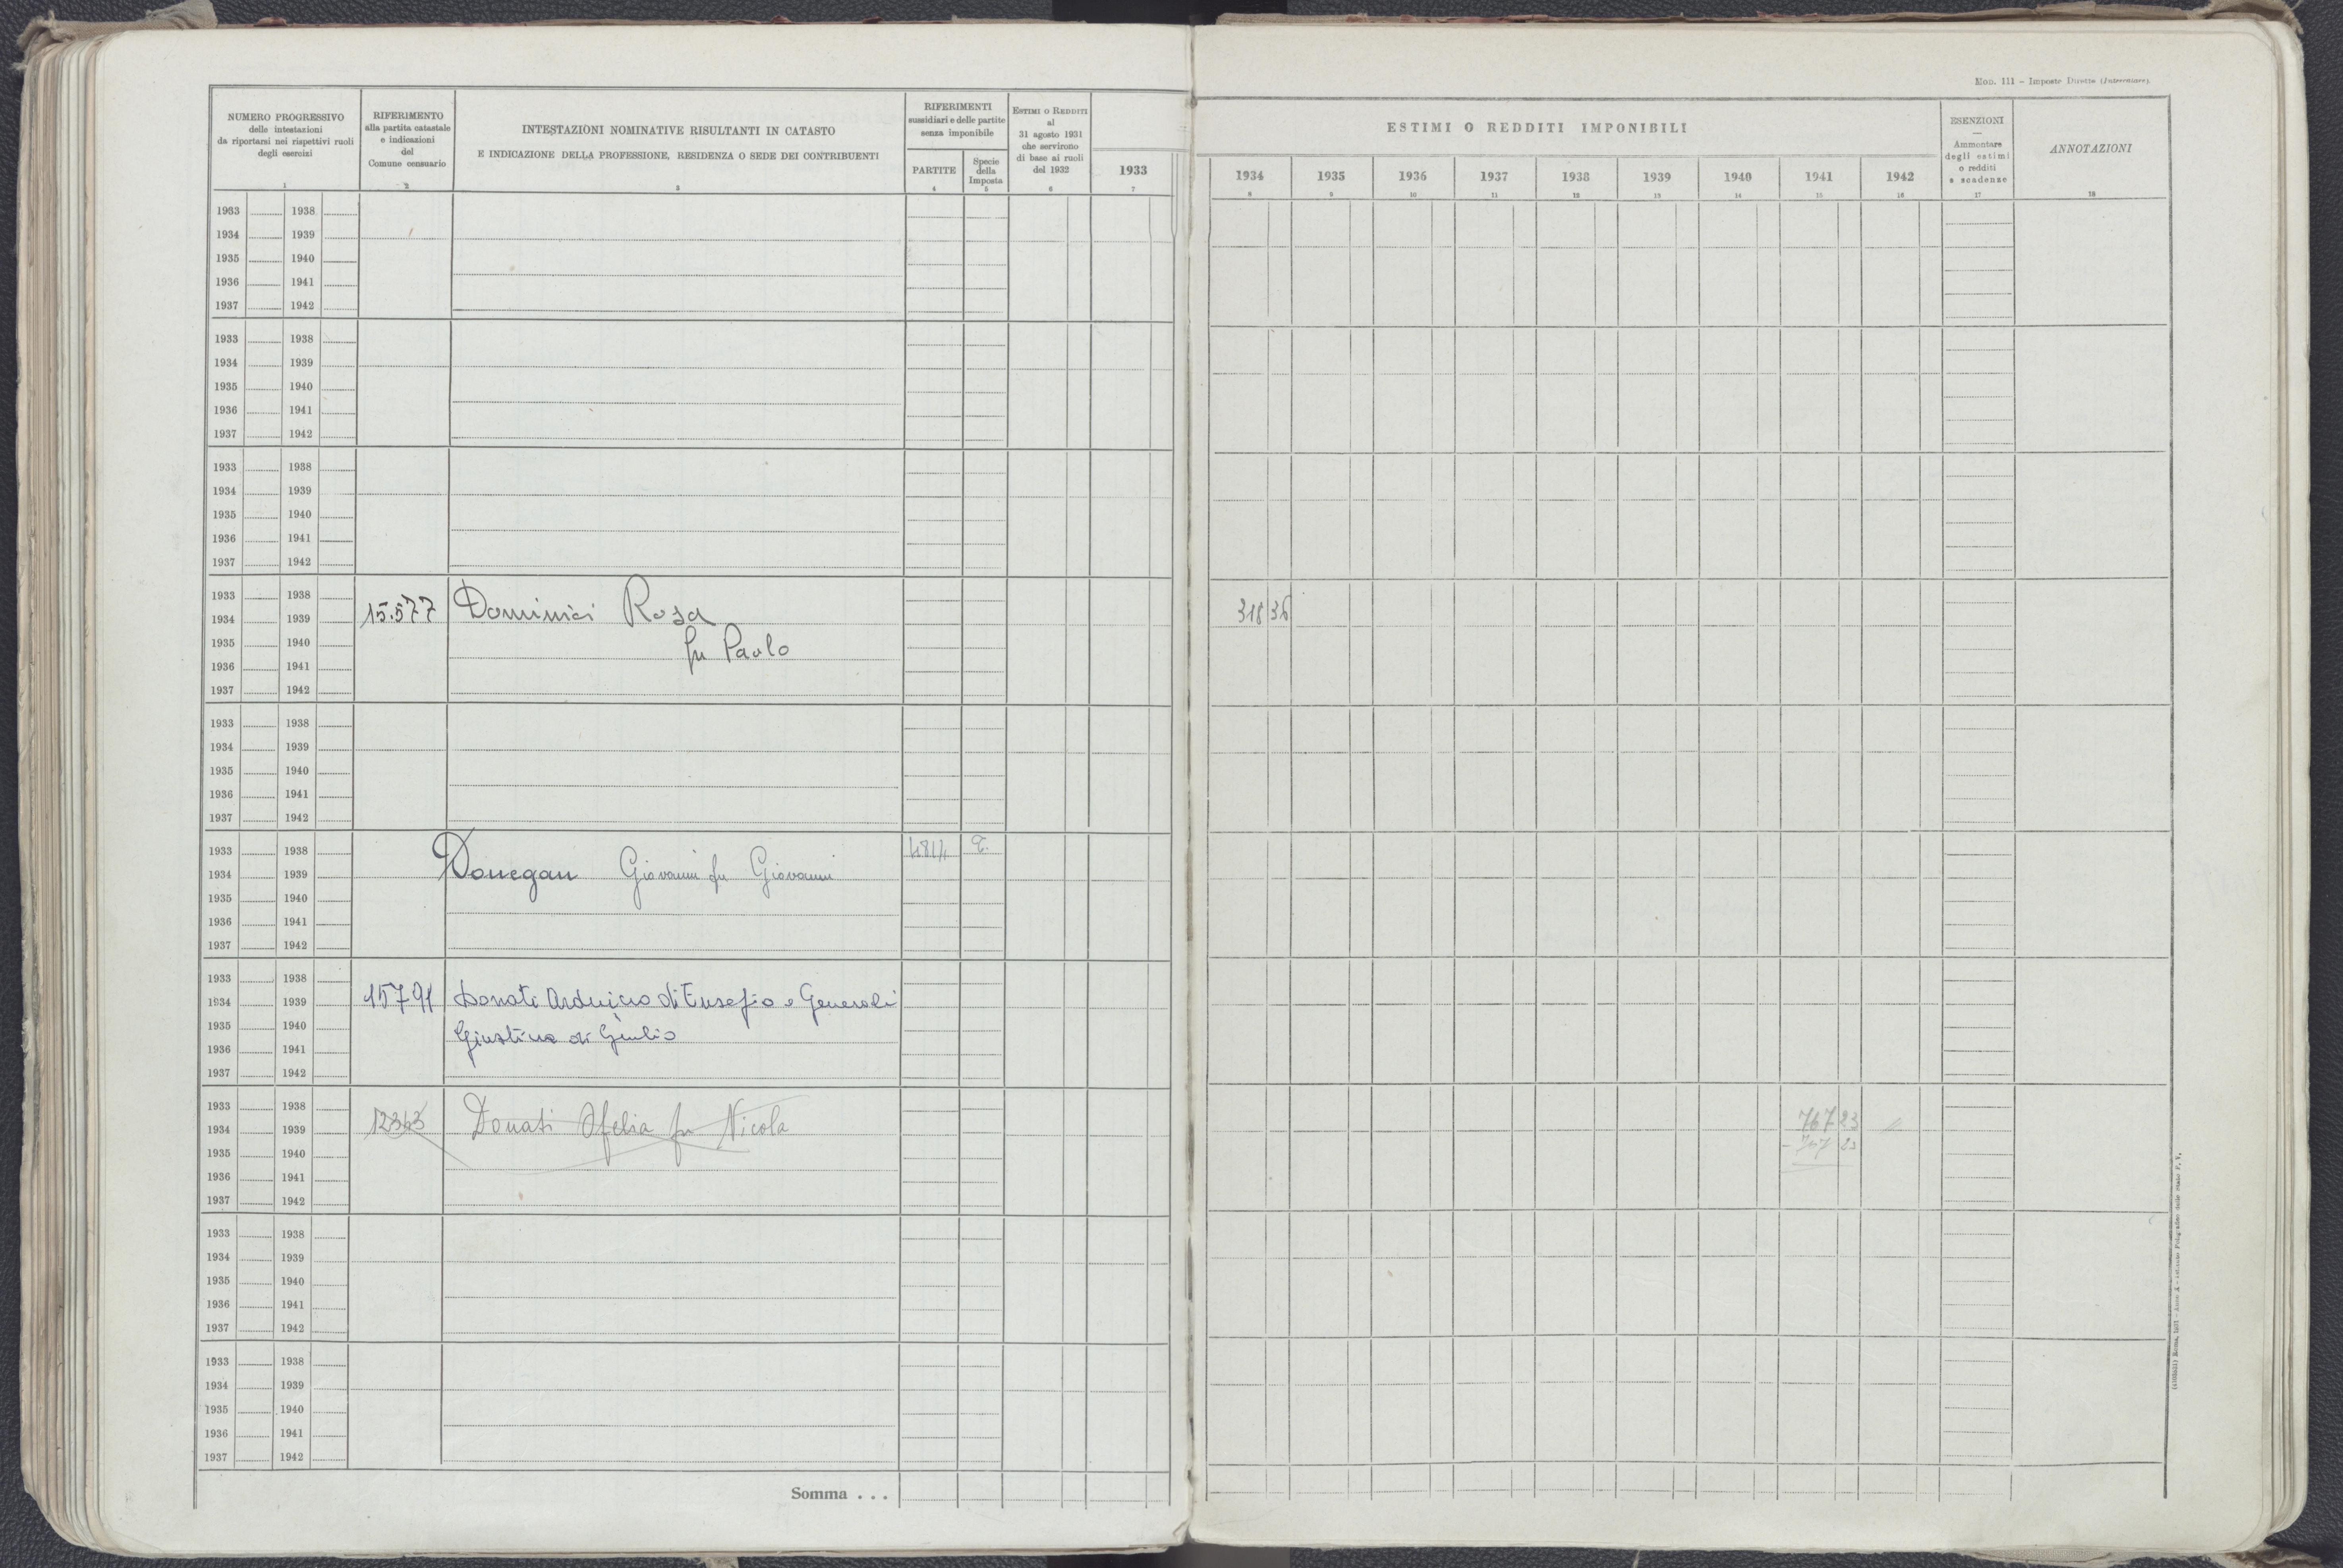 Mod. 111 – Imposte Dirette (Intercalare).
NUMERO PROGRESSIVO
delle intestazioni
da riportarsi nei rispettivi ruoli
degli esercizi
1
RIFERIMENTO
alla partita catastale
e indicazioni
del
Comune censuario
2
INTESTAZIONI NOMINATIVE RISULTANTI IN CATASTO
E INDICAZIONE DELLA PROFESSIONE, RESIDENZA O SEDE DEI CONTRIBUENTI
3
RIFERIMENTI
sussidiari e delle partite
senza imponibile
PARTITE
4
Specie
della
Imposta
5
Estimi o Redditi
al
31 agosto 1931
che servirono
di base ai ruoli
del 1932
6
1933
7
ESTIMI O REDDITI IMPONIBILI
1934 1935 1936 1937 1938 1939 1940 1941 1942
8 9 10 11 12 13 14 15 16
ESENZIONI
—
Ammontare
degli estimi
o redditi
e scadenze
17
ANNOTAZIONI
18
1933 1938
1934 1939
1935 1940
1936 1941
1937 1942
1933 1938
1934 1939
1935 1940
1936 1941
1937 1942
1933 1938
1934 1939
1935 1940
1936 1941
1937 1942
1933 1938
1934 1939 15.577 Dominici Rosa 318 36
1935 1940 fu Paolo
1936 1941
1937 1942
1933 1938
1934 1939
1935 1940
1936 1941
1937 1942
1933 1938
1934 1939 Donegan Giovanni fu Giovanni
1935 1940
1936 1941
1937 1942
1933 1938
1934 1939 15791 Donati Arduino di Eusefio e Generali
1935 1940 Giustina di Giulio
1936 1941
1937 1942
1933 1938
1934 1939 Donati Ofelia fu Nicola 767 23
1935 1940
1936 1941
1937 1942
1933 1938
1934 1939
1935 1940
1936 1941
1937 1942
1933 1938
1934 1939
1935 1940
1936 1941
1937 1942
Somma . . .